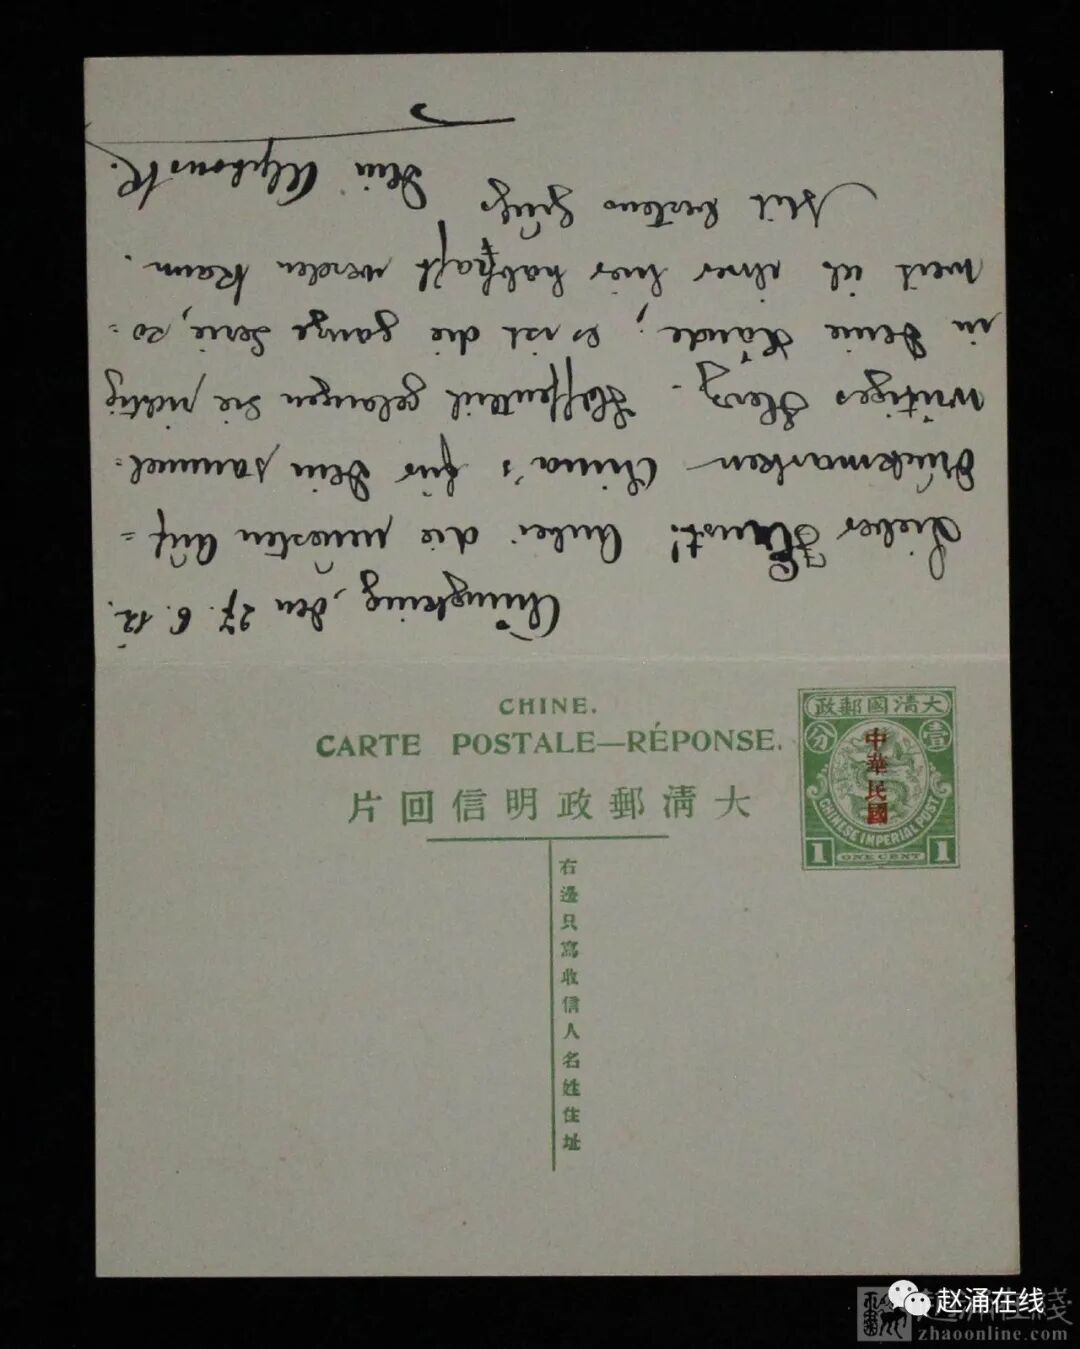 Chungking, den 27. 6. 12.
Lieber Anbei die neuesten Auf=
druckmarken China's für Dein sammel=
wütiges Herz. Hoffentlich gelangen sie richtig
in Deine Hände; es ist die ganze Serie, so=
weit ich ihrer hier habhaft werden kann.
Mit bestem Gruß
Dein Alphons K.
CHINE.
CARTE POSTALE—RÉPONSE.
大清郵政明信回片
右邊只寫收信人名姓住址
大清國郵政
壹分
中華民國
CHINESE IMPERIAL POST
1 ONE CENT 1
赵涌在线
赵涌在线
zhaoonline.com